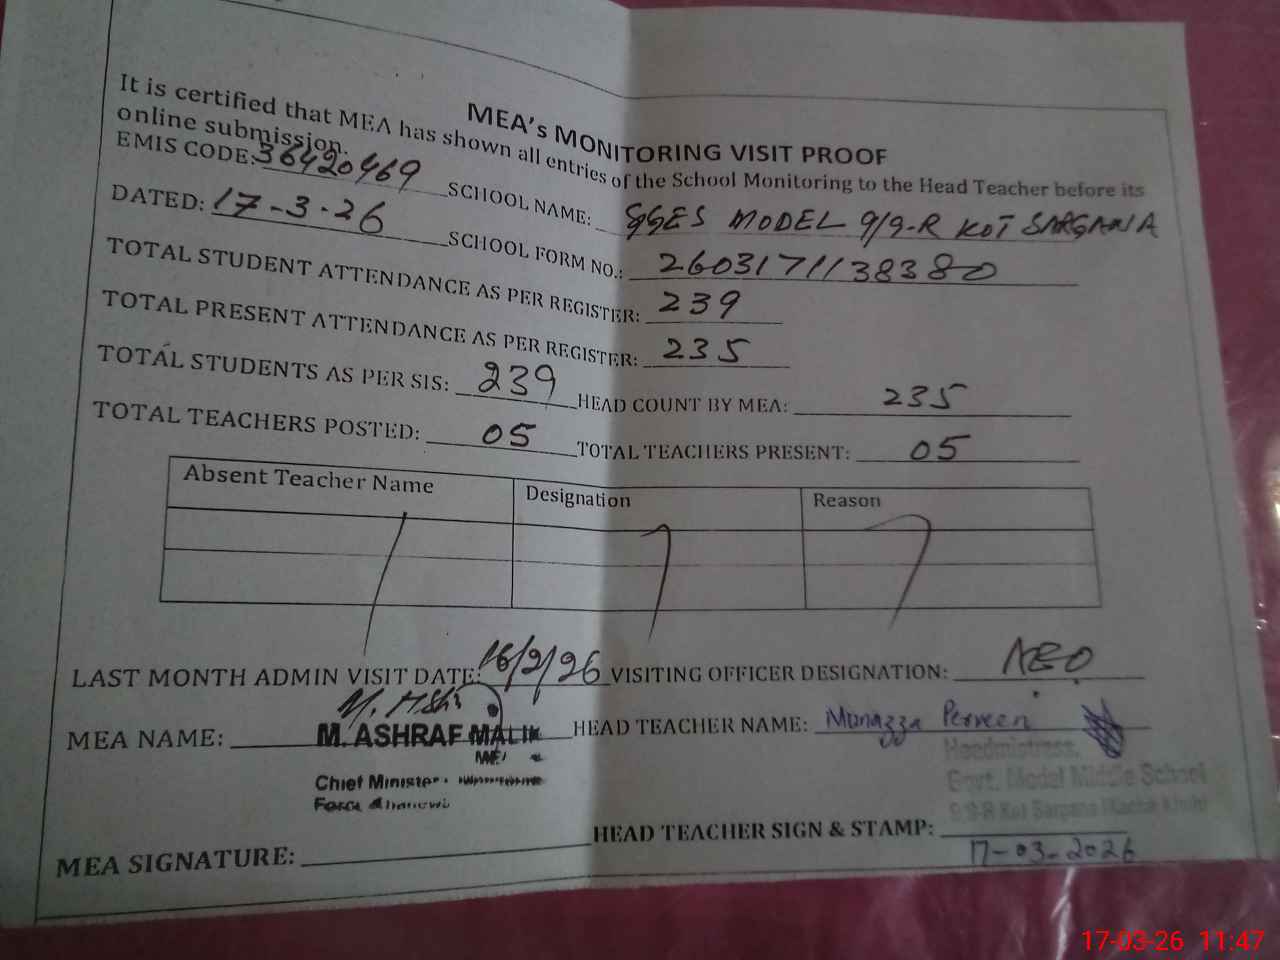 MEA's MONITORING VISIT PROOF
It is certified that MEA has shown all entries of the School Monitoring to the Head Teacher before its
online submission.
EMIS CODE: 36420469 SCHOOL NAME: GGES MODEL 9/9-R KOT SARGANA
DATED: 17-3-26 SCHOOL FORM NO.: 2603171138380
TOTAL STUDENT ATTENDANCE AS PER REGISTER: 239
TOTAL PRESENT ATTENDANCE AS PER REGISTER: 235
TOTAL STUDENTS AS PER SIS: 239 HEAD COUNT BY MEA: 235
TOTAL TEACHERS POSTED: 05 TOTAL TEACHERS PRESENT: 05
Absent Teacher Name Designation Reason
LAST MONTH ADMIN VISIT DATE: 16/2/26 VISITING OFFICER DESIGNATION: AEO
MEA NAME: M. ASHRAF MALIK HEAD TEACHER NAME: Munazza Perveen
MEA
Chief Minister
Force Khanewal
Headmistress,
Govt. Model Middle School
9 9-R Kot Sargana (Kacha Khuh)
MEA SIGNATURE: HEAD TEACHER SIGN & STAMP:
17-03-2026
17-03-26 11:47